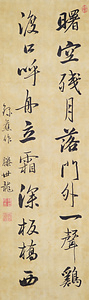 曙空殘月落門外一聲鷄
渡口呼舟立霜深板橋西
滕世龍